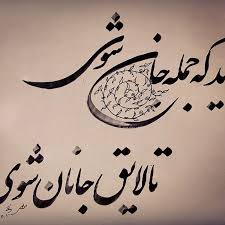 ید که جمله جان شوی
تا لایق جانان شوی